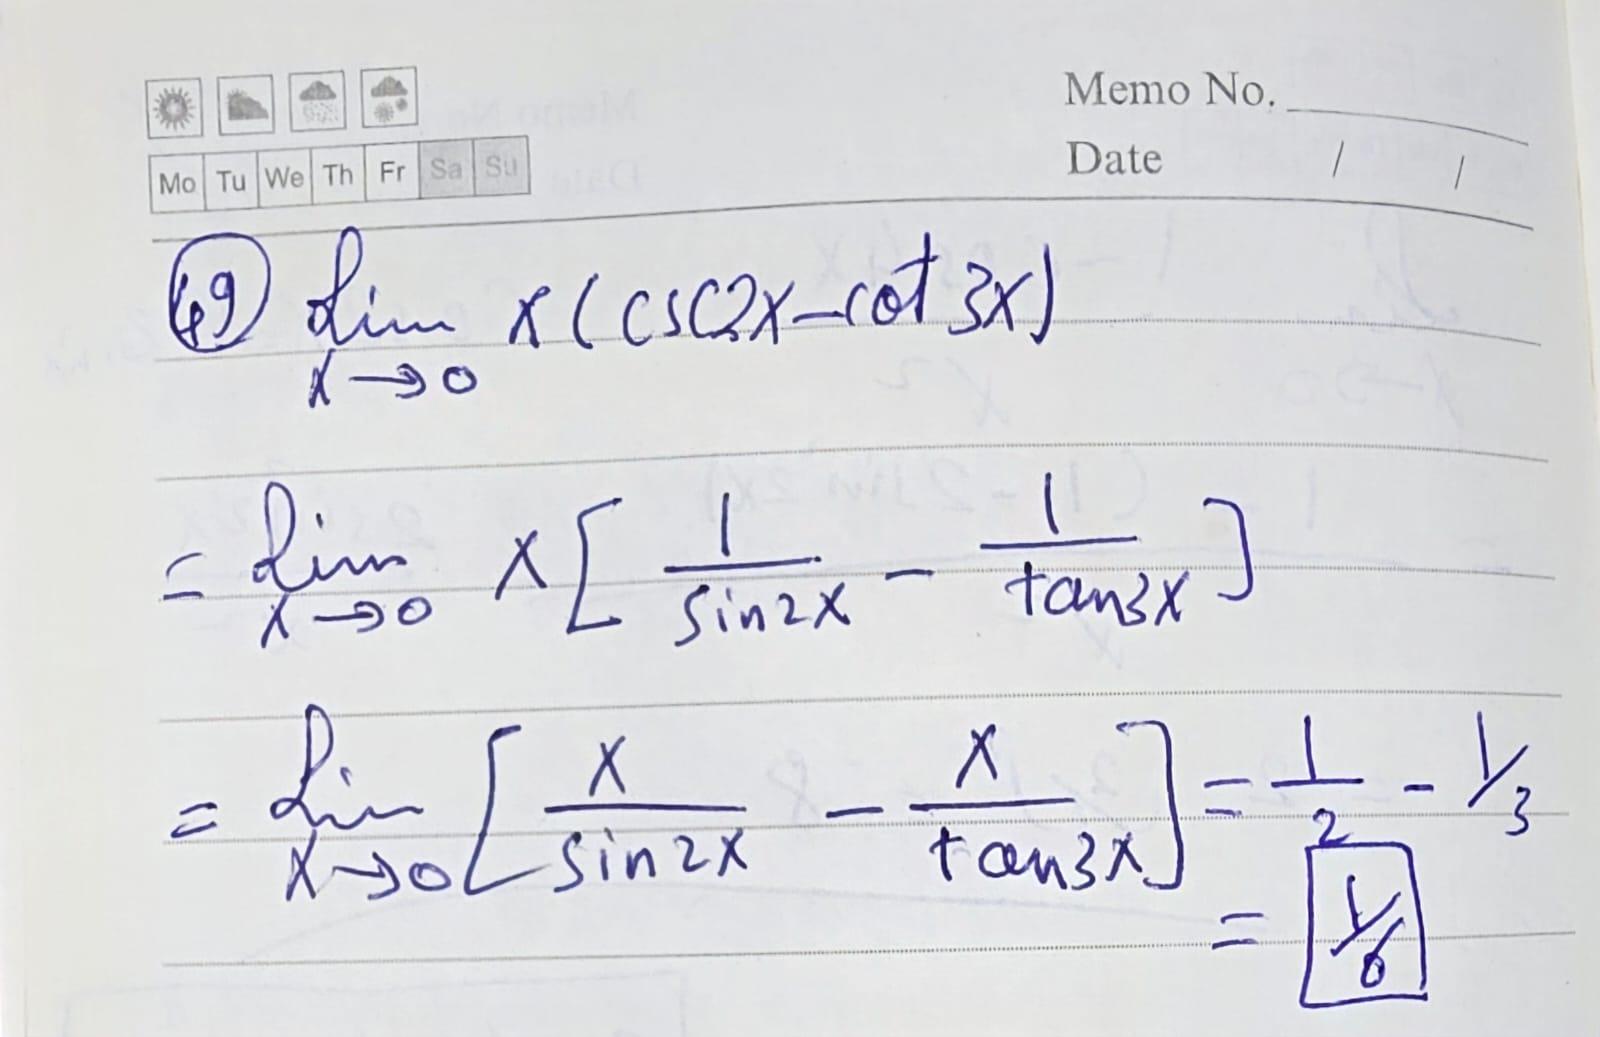 Memo No.
Mo Tu We Th Fr Sa Su
Date / /
49 Lim x→0 x(csc2x-cot3x)
= Lim x→0 x[1/sin2x - 1/tan3x]
= Lim x→0 [x/sin2x - x/tan3x] = 1/2 - 1/3
= 1/6